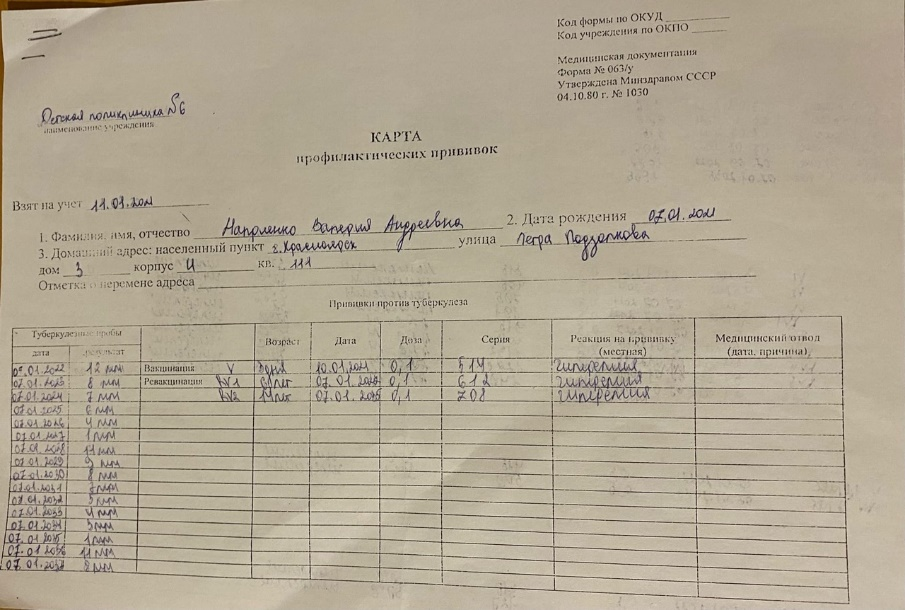 Код формы по ОКУД
Код учреждения по ОКПО
Медицинская документация
Форма № 063/у
Утверждена Минздравом СССР
04.10.80 г. № 1030
Детская поликлиника №6
наименование учреждения
КАРТА
профилактических прививок
Взят на учет 11.01.2021
1. Фамилия, имя, отчество Валерия Андреевна 2. Дата рождения 07.01.2021
3. Домашний адрес: населенный пункт г. Красноярск улица Петра Подзолкова
дом 3 корпус И кв. 111
Отметка о перемене адреса
Прививки против туберкулеза
Туберкулезные пробы Возраст Дата Доза Серия Реакция на прививку (местная) Медицинский отвод (дата, причина)
дата результат
07.01.2022 12 мм Вакцинация V 3 дня 10.01.2021 0,1 514 гиперемия
07.01.2023 8 мм Ревакцинация RV1 0,1 612 гиперемия
07.01.2024 7 мм RV2 14 лет 07.01.2035 0,1 708 гиперемия
07.01.2025 6 мм
07.01.2026 4 мм
07.01.2027 1 мм
07.01.2028 11 мм
07.01.2029 9 мм
07.01.2030 8 мм
07.01.2031 7 мм
07.01.2032 5 мм
07.01.2033 4 мм
07.01.2034 3 мм
07.01.2035 1 мм
07.01.2036 11 мм
07.01.2037 8 мм